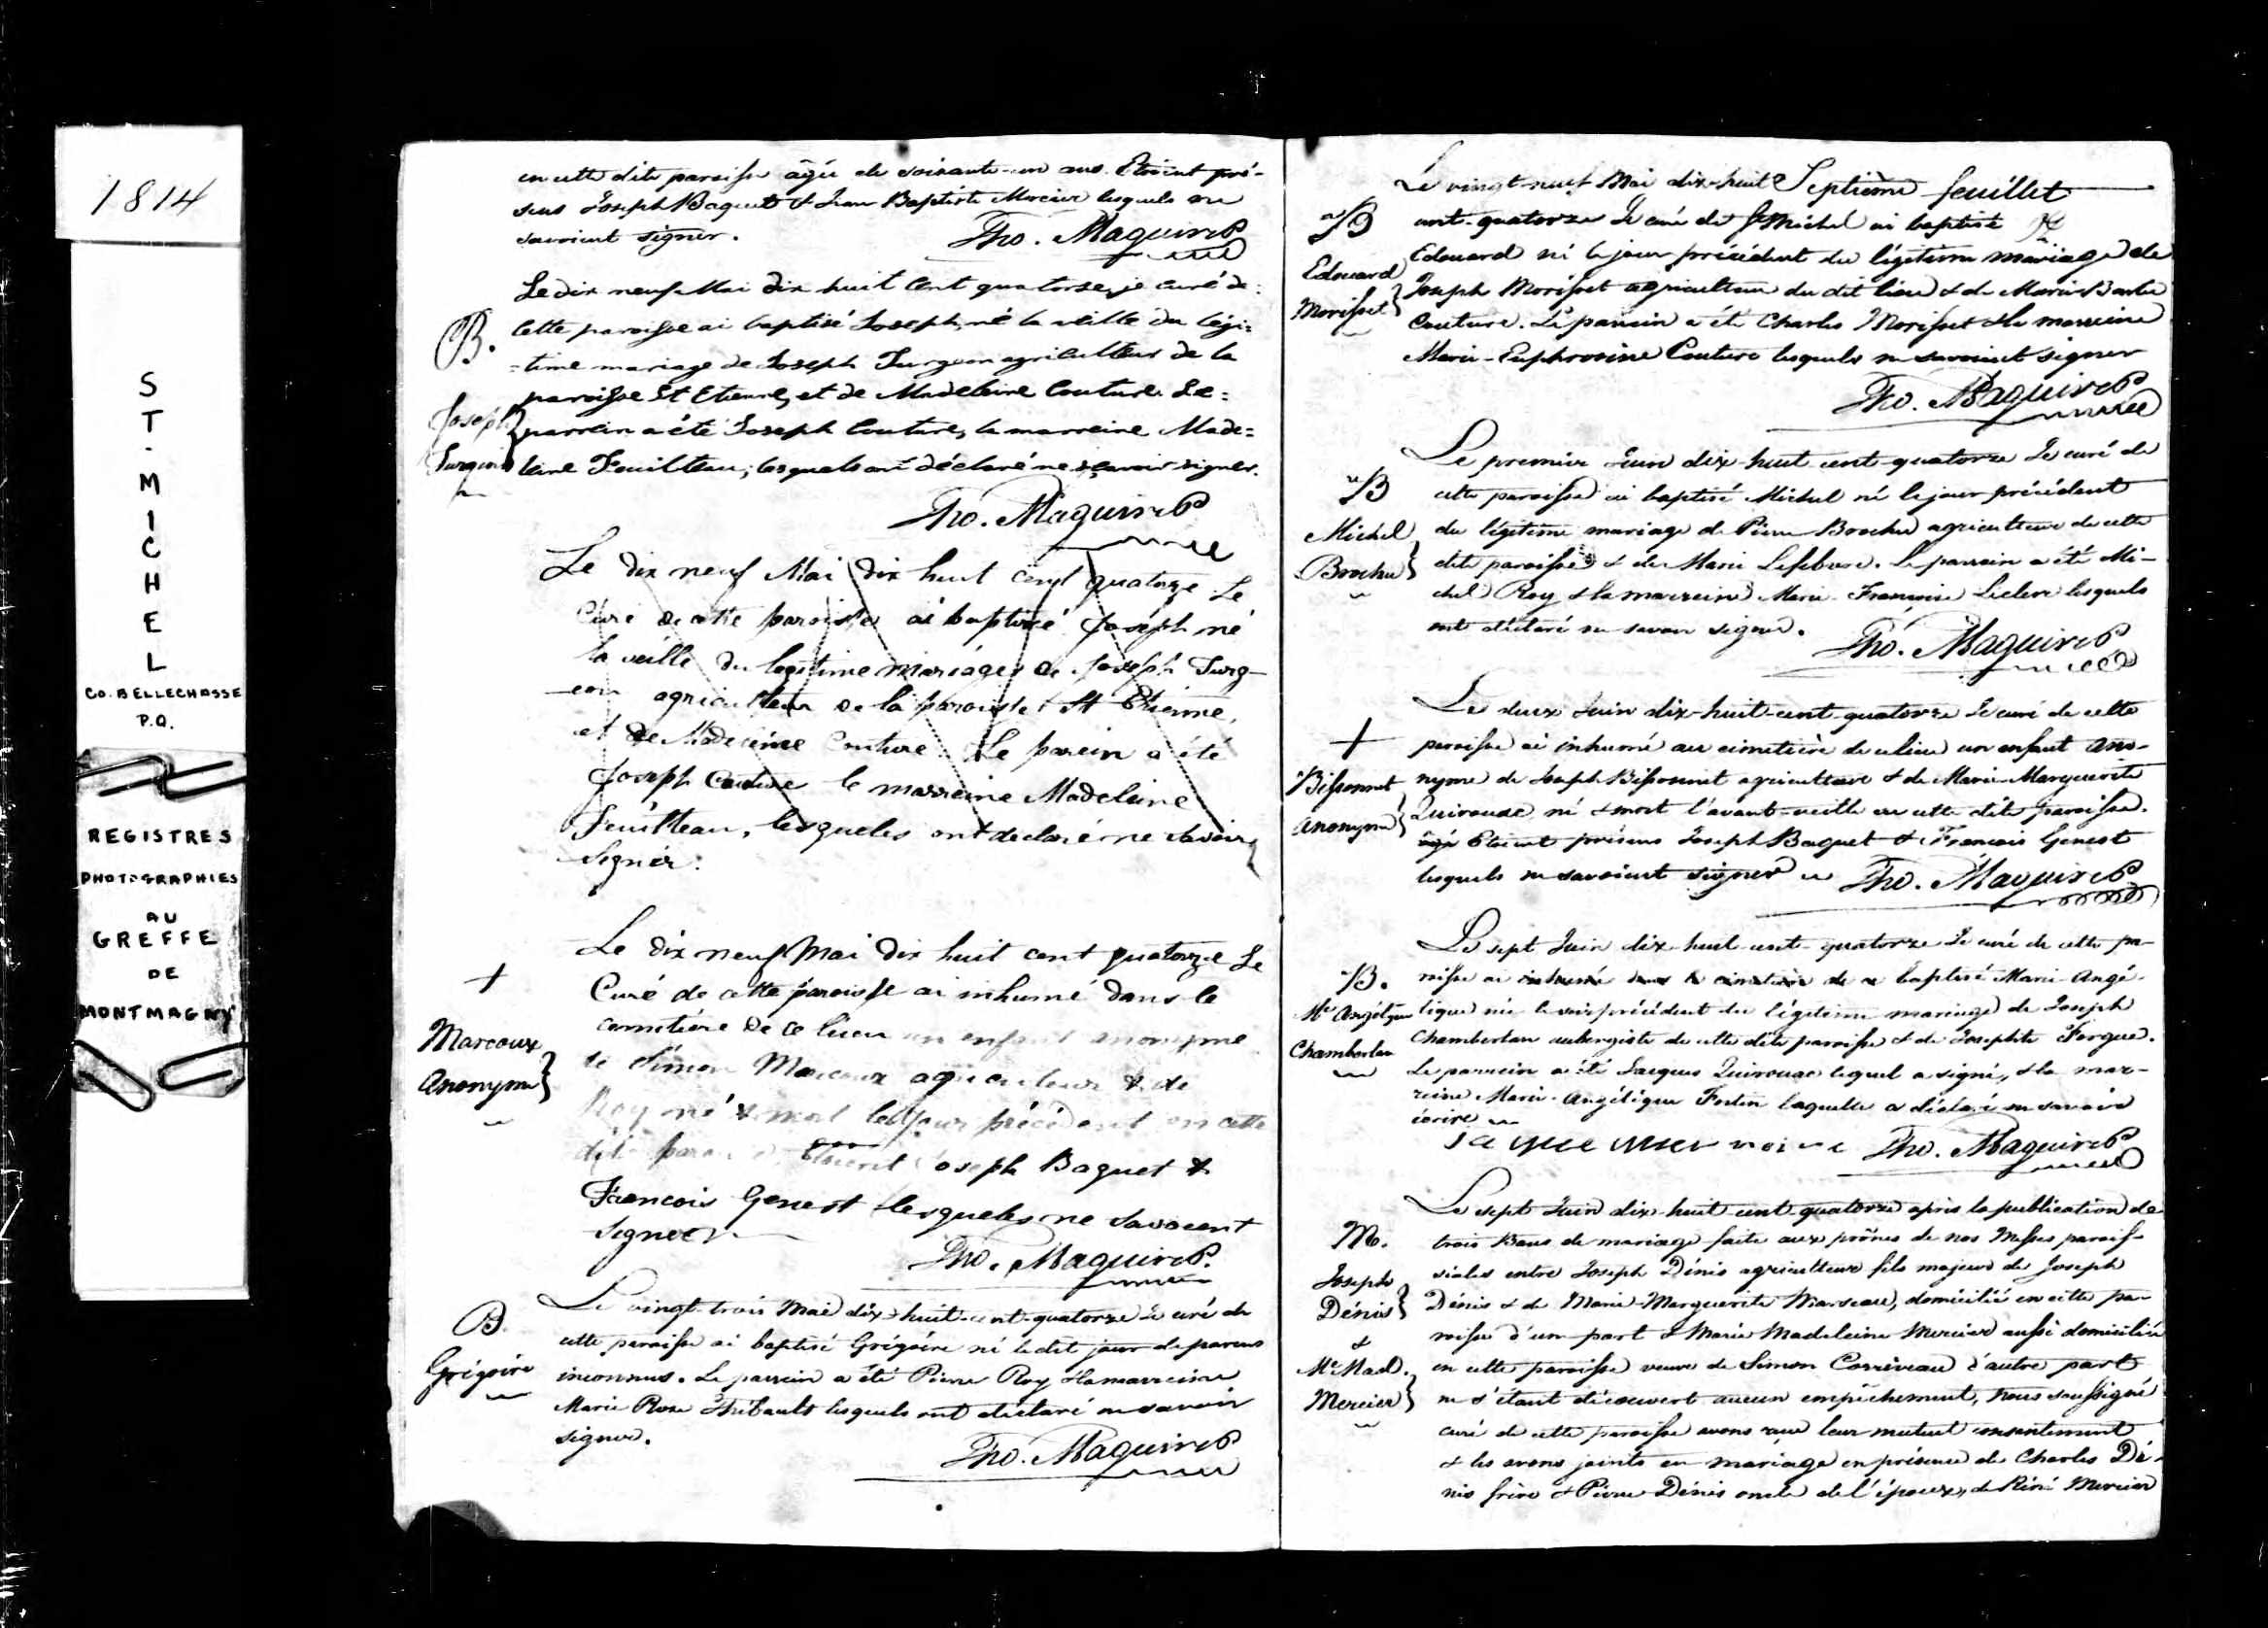 1814
ST. MICHEL
CO. BELLECHASSE
P.Q.
REGISTRES
PHOTOGRAPHIES
AU
GREFFE
DE
MONTMAGNY
en cette dite paroisse âgée de soixante-un ans. Etoient pré-
sens Joseph Baquet & Jean Baptiste Mercier lesquels ne
savoient signer. Tho. Maguire P
Le dix neuf Mai dix huit cent quatorze, je curé de
B. cette paroisse ai baptisé Joseph, né la veille du légi=
=time mariage de Joseph Turgeon agriculteur de la
paroisse St Etienne, et de Madeleine Couture. Le=
Joseph parrain a été Joseph Couture, la marreine Made=
Turgeon leine Feuilteau, lesquels ont déclaré ne sçavoir signer.
Tho. Maguire P
Le dix neuf Mai dix huit cent quatorze Le
Curé de cette paroisse ai baptisé Joseph né
la veille du legitime mariage de Joseph Turg-
eon agriculteur de la paroisse St Etienne,
et de Madeleine Couture. Le parein a été
Joseph Couture le marreine Madeleine
Feuilteau, lesqueles ont declaré ne savoir
signer.
Le dix neuf Mai dix huit cent quatorze Le
+ Curé de cette paroisse ai inhumé dans le
cemetiére de ce lieu un enfant anonyme
Marcoux de Simon Marcoux agriculteur & de
Anonyme Roy né & mort le jour précédent en cette
dite Etoient Joseph Baquet &
Francois Genest lesqueles ne savoient
signer
Tho. Maguire P.
Le vingt-trois Mai dix-huit-cent-quatorze Je curé de
B. cette paroisse ai baptisé Grégoire né ledit jour de parens
Grégoire inconnus. Le parrein a été Pierre Roy & la marreine
Marie Rose Thibault lesquels ont déclaré ne savoir
signer. Tho. Maguire P
Septième feuillet
Le vingt-neuf Mai dix-huit
B cent-quatorze Je curé de St Michel ai baptisé
Edouard Edouard né le jour précédent du légitime mariage de
Morisset Joseph Morisset agriculteur du dit lieu & de Marie Barbe
Couture. Le parrain a été Charles Morisset & la marreine
Marie-Euphrosine Couture lesquels ne savoient signer
Tho. Maguire P
Le premier Juin dix-huit cent-quatorze Je curé de
B cette paroisse ai baptisé Michel né le jour précédent
Michel du légitime mariage de Pierre Brochu agriculteur de cette
Brochu dite paroisse & de Marie Lefebvre. Le parrain a été Mi-
chel Roy & la marreine Marie-Françoise Leclerc lesquels
ont déclaré ne savoir signer. Tho. Maguire P
Le deux Juin dix-huit-cent-quatorze Je curé de cette
+ paroisse ai inhumé au cimetière de ce lieu un enfant ano-
Bissonnet nyme de Joseph Bissonnet agriculteur & de Marie Marguerite
Anonyme Quirouac né & mort l'avant-veille en cette dite paroisse.
âgé Etoient présens Joseph Baquet & Francois Genest
lesquels ne savoient signer Tho. Maguire P
Le sept Juin dix-huit-cent-quatorze Je curé de cette pa-
B. roisse ai inhumé dans le cimetière de ce baptisé Marie-Angé-
Me Angélique lique née le soir précédent du légitime mariage de Joseph
Chamberlan Chamberlan aubergiste de cette dite paroisse & de Josephte Forgue.
Le parrein a été Jacques Quirouac lequel a signé, & la mar-
reine Marie-Angélique Fortin laquelle a déclaré ne savoir
écrire
Tho. Maguire P
Le sept Juin dix-huit-cent-quatorze après la publication de
M. trois Bans de mariage faite aux prônes de nos Messes parois-
Joseph siales entre Joseph Dénis agriculteur fils majeur de Joseph
Dénis Dénis & de Marie-Marguerite Marseau, domicilié en cette pa-
& roisse d'une part & Marie Madeleine Mercier aussi domiciliée
Me Mad. en cette paroisse veuve de Simon Corriveau d'autre part
Mercier ne s'étant découvert aucun empêchement, Nous soussigné
curé de cette paroisse avons reçu leur mutuel consentement
& les avons joints en mariage en présence de Charles Dé-
nis frère & Pierre Dénis oncle de l'époux, de Réné Mercier